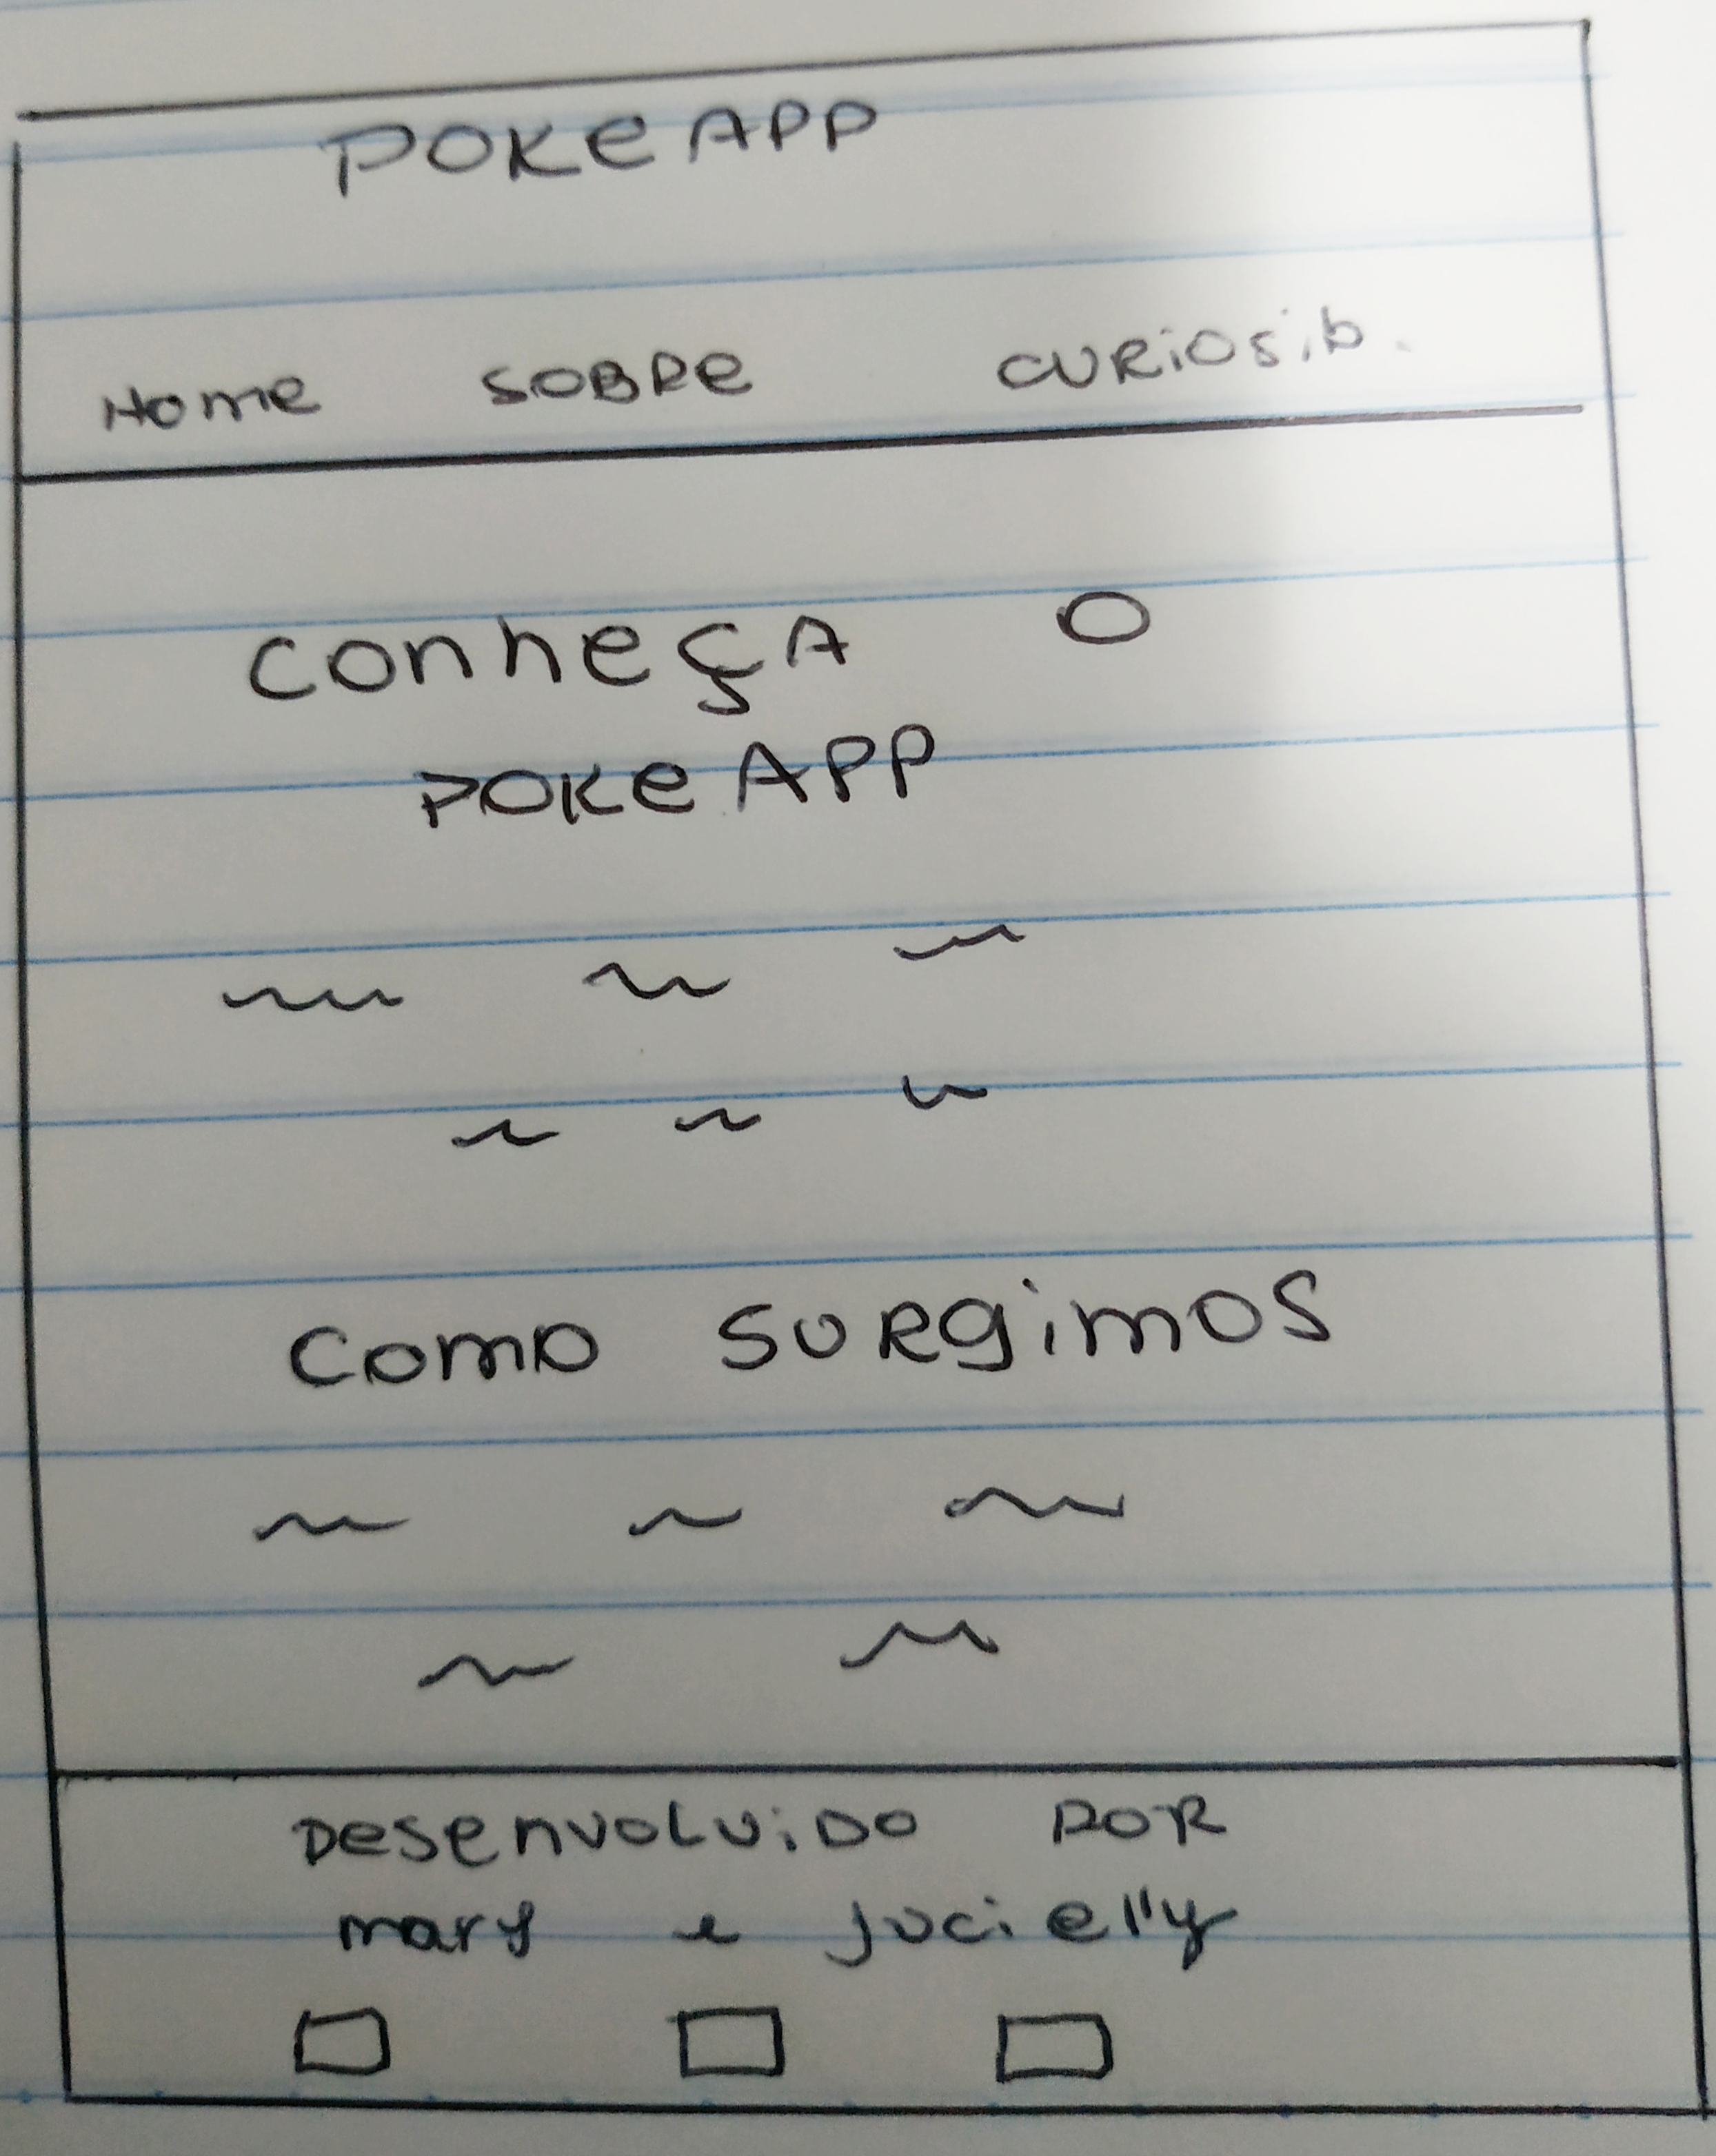 POKEAPP
Home SOBRE CURIOSiD.
conheçA O
POKEAPP
como SURgimos
Desenvolvido POR
mary e jucielly